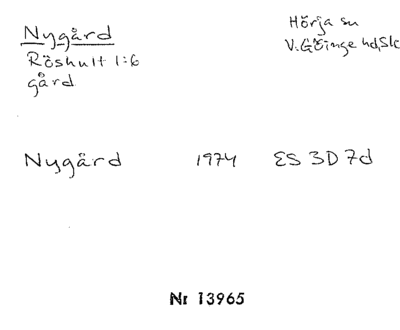 Nygård
Röshult 1:6
gård
Hörja sn
V. Göinge hd, Sk
Nygård 1974 ES 3D 7d
Nr 13965